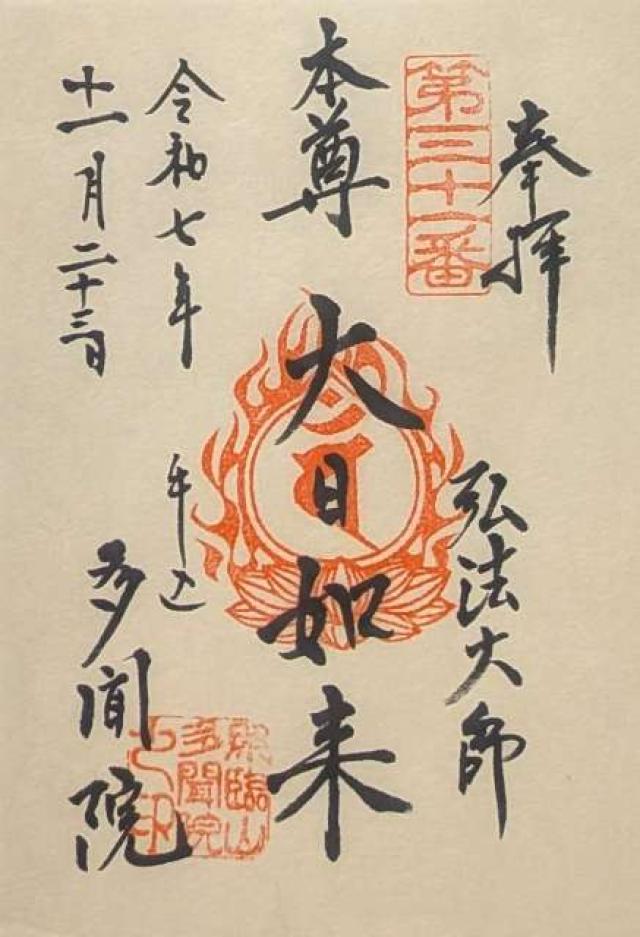 奉拝
第三十一番
弘法大師
本尊
大日如来
令和七年
十一月二十三日
牛込
多聞院
照臨山
多聞院
之印